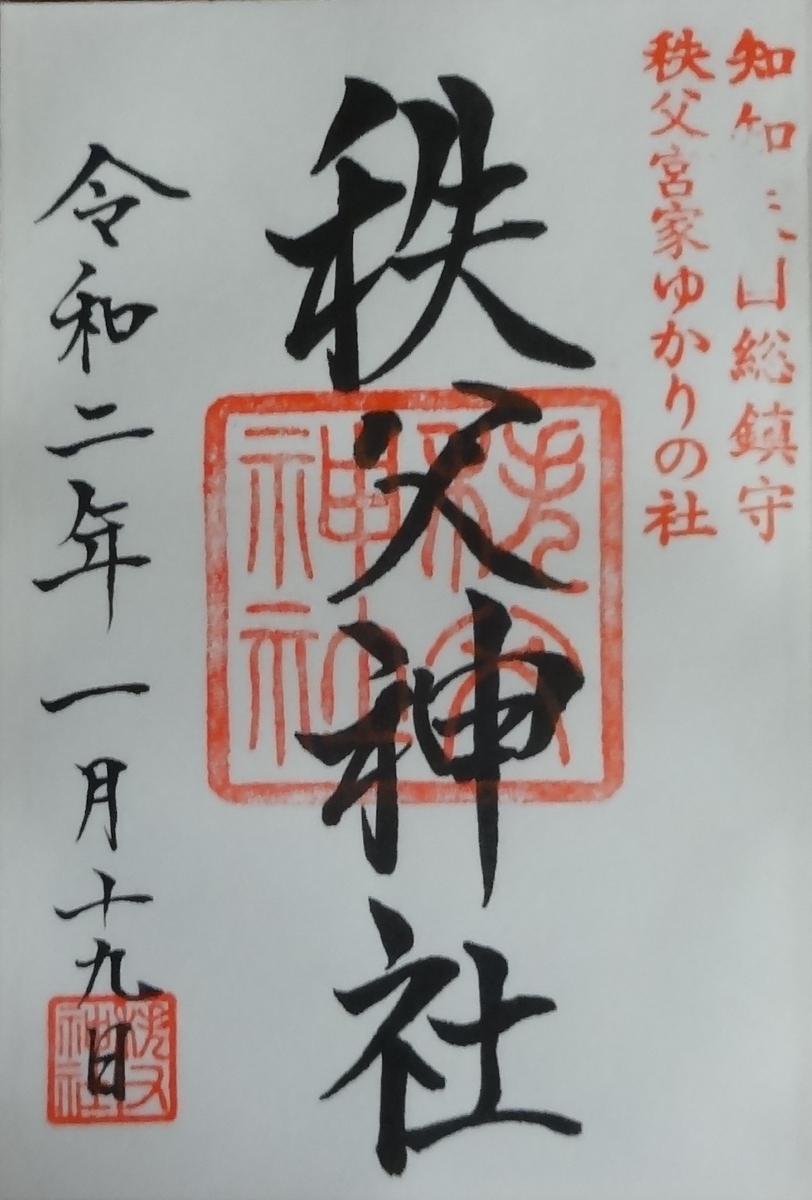 知知 山総鎮守
秩父宮家ゆかりの社
秩父神社
秩父神社
令和二年一月十九日
秩父神社